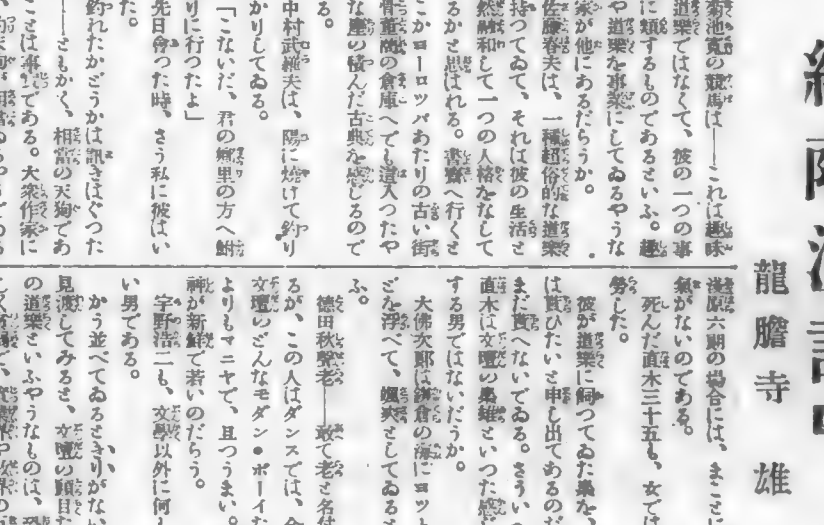 龍膽寺 雄
菊池寛の競馬は――これは趣味
道樂ではなくて、彼の一つの事
に類するものであるといふ。趣
や道樂を事業にしてゐるやうな
家が他にあるだらうか。
佐藤春夫は、一種超俗的な道樂
持つてゐて、それは彼の生活と
然融和して一つの人格をなして
るかと思はれる。書齋へ行くと
こかヨーロツパあたりの古い街
骨董商の倉庫へでも這入つたや
な塵の積んだ古典を感じるので
る。
中村武羅夫は、陽に燒けて釣り
かりしてゐる。
「こないだ、君の鄕里の方へ鮒
りに行つたよ」
先日會つた時、さう私に彼はい
た。
釣れたかどうかは訊きはぐつた
――ともかく、相當の天狗であ
ことは事實である。大衆作家に
淺原六朗の場合には、まことに
氣がないのである。
死んだ直木三十五も、女では
勞した。
彼が道樂に飼つてゐた
は貰ひたいと申し出てあるのだ
まだ貰へないでゐる。さうい
直木は文壇の梟雄といつた感
する男ではないだらうか。
大佛次郎は鎌倉の海にヨツト
どを浮べて、颯爽としてゐると
ふ。
德田秋聲老――敢て老と名付
るが、この人はダンスでは、今
文壇のどんなモダン・ボーイた
よりもマニヤで、且つうまい。
神が新鮮で若いのだらう。
宇野浩二も、文學以外に何も
い男である。
かう並べてゐるときりがない
見渡してみると、文壇の顔目た
の道樂といふやうなものは、恐